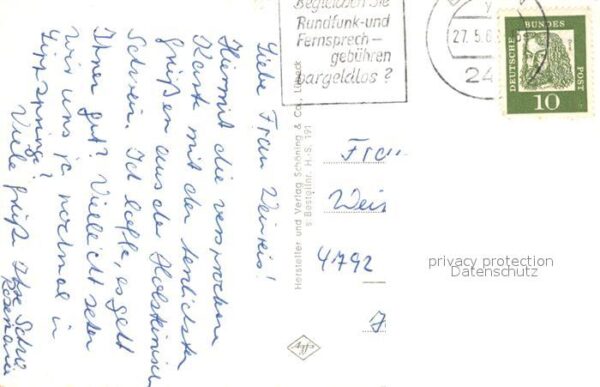 Liebe Frau Weireis!
Hiermit die versprochene
Karte mit den herzlichsten
Grüßen aus der Holsteinischen
Schweiz. Ich hoffe, es geht
Ihnen gut? Vielleicht sehen
wir uns ja nochmal in
Lippspringe?
Viele Grüße Ihre
Rosemarie
Hersteller und Verlag Schöning & Co., Lübeck
Bestellnr. H.-S. 191
Agfa
Begleichen Sie
Rundfunk-und
Fernsprech-
gebühren
bargeldlos?
27.5.6
24
DEUTSCHE
BUNDES
POST
10
Frau
Weir
4792
privacy protection
Datenschutz